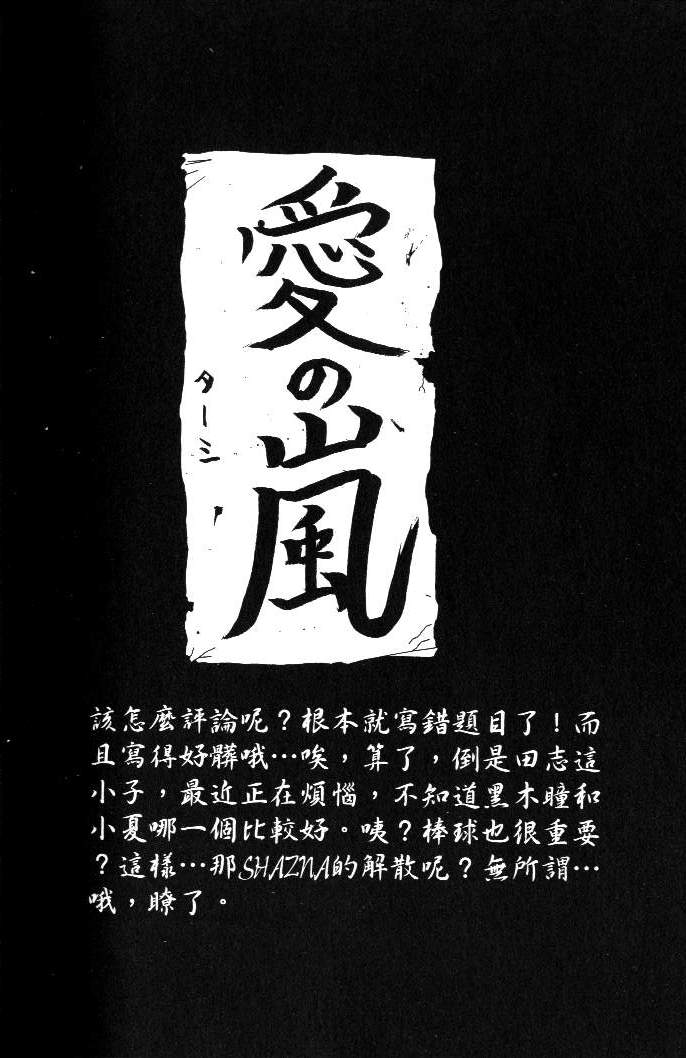 愛の嵐
ターミ
該怎麼評論呢？根本就寫錯題目了！而
且寫得好髒哦…唉，算了，倒是田志這
小子，最近正在煩惱，不知道黑木瞳和
小夏哪一個比較好。咦？棒球也很重要
？這樣…那SHAZNA的解散呢？無所謂…
哦，瞭了。